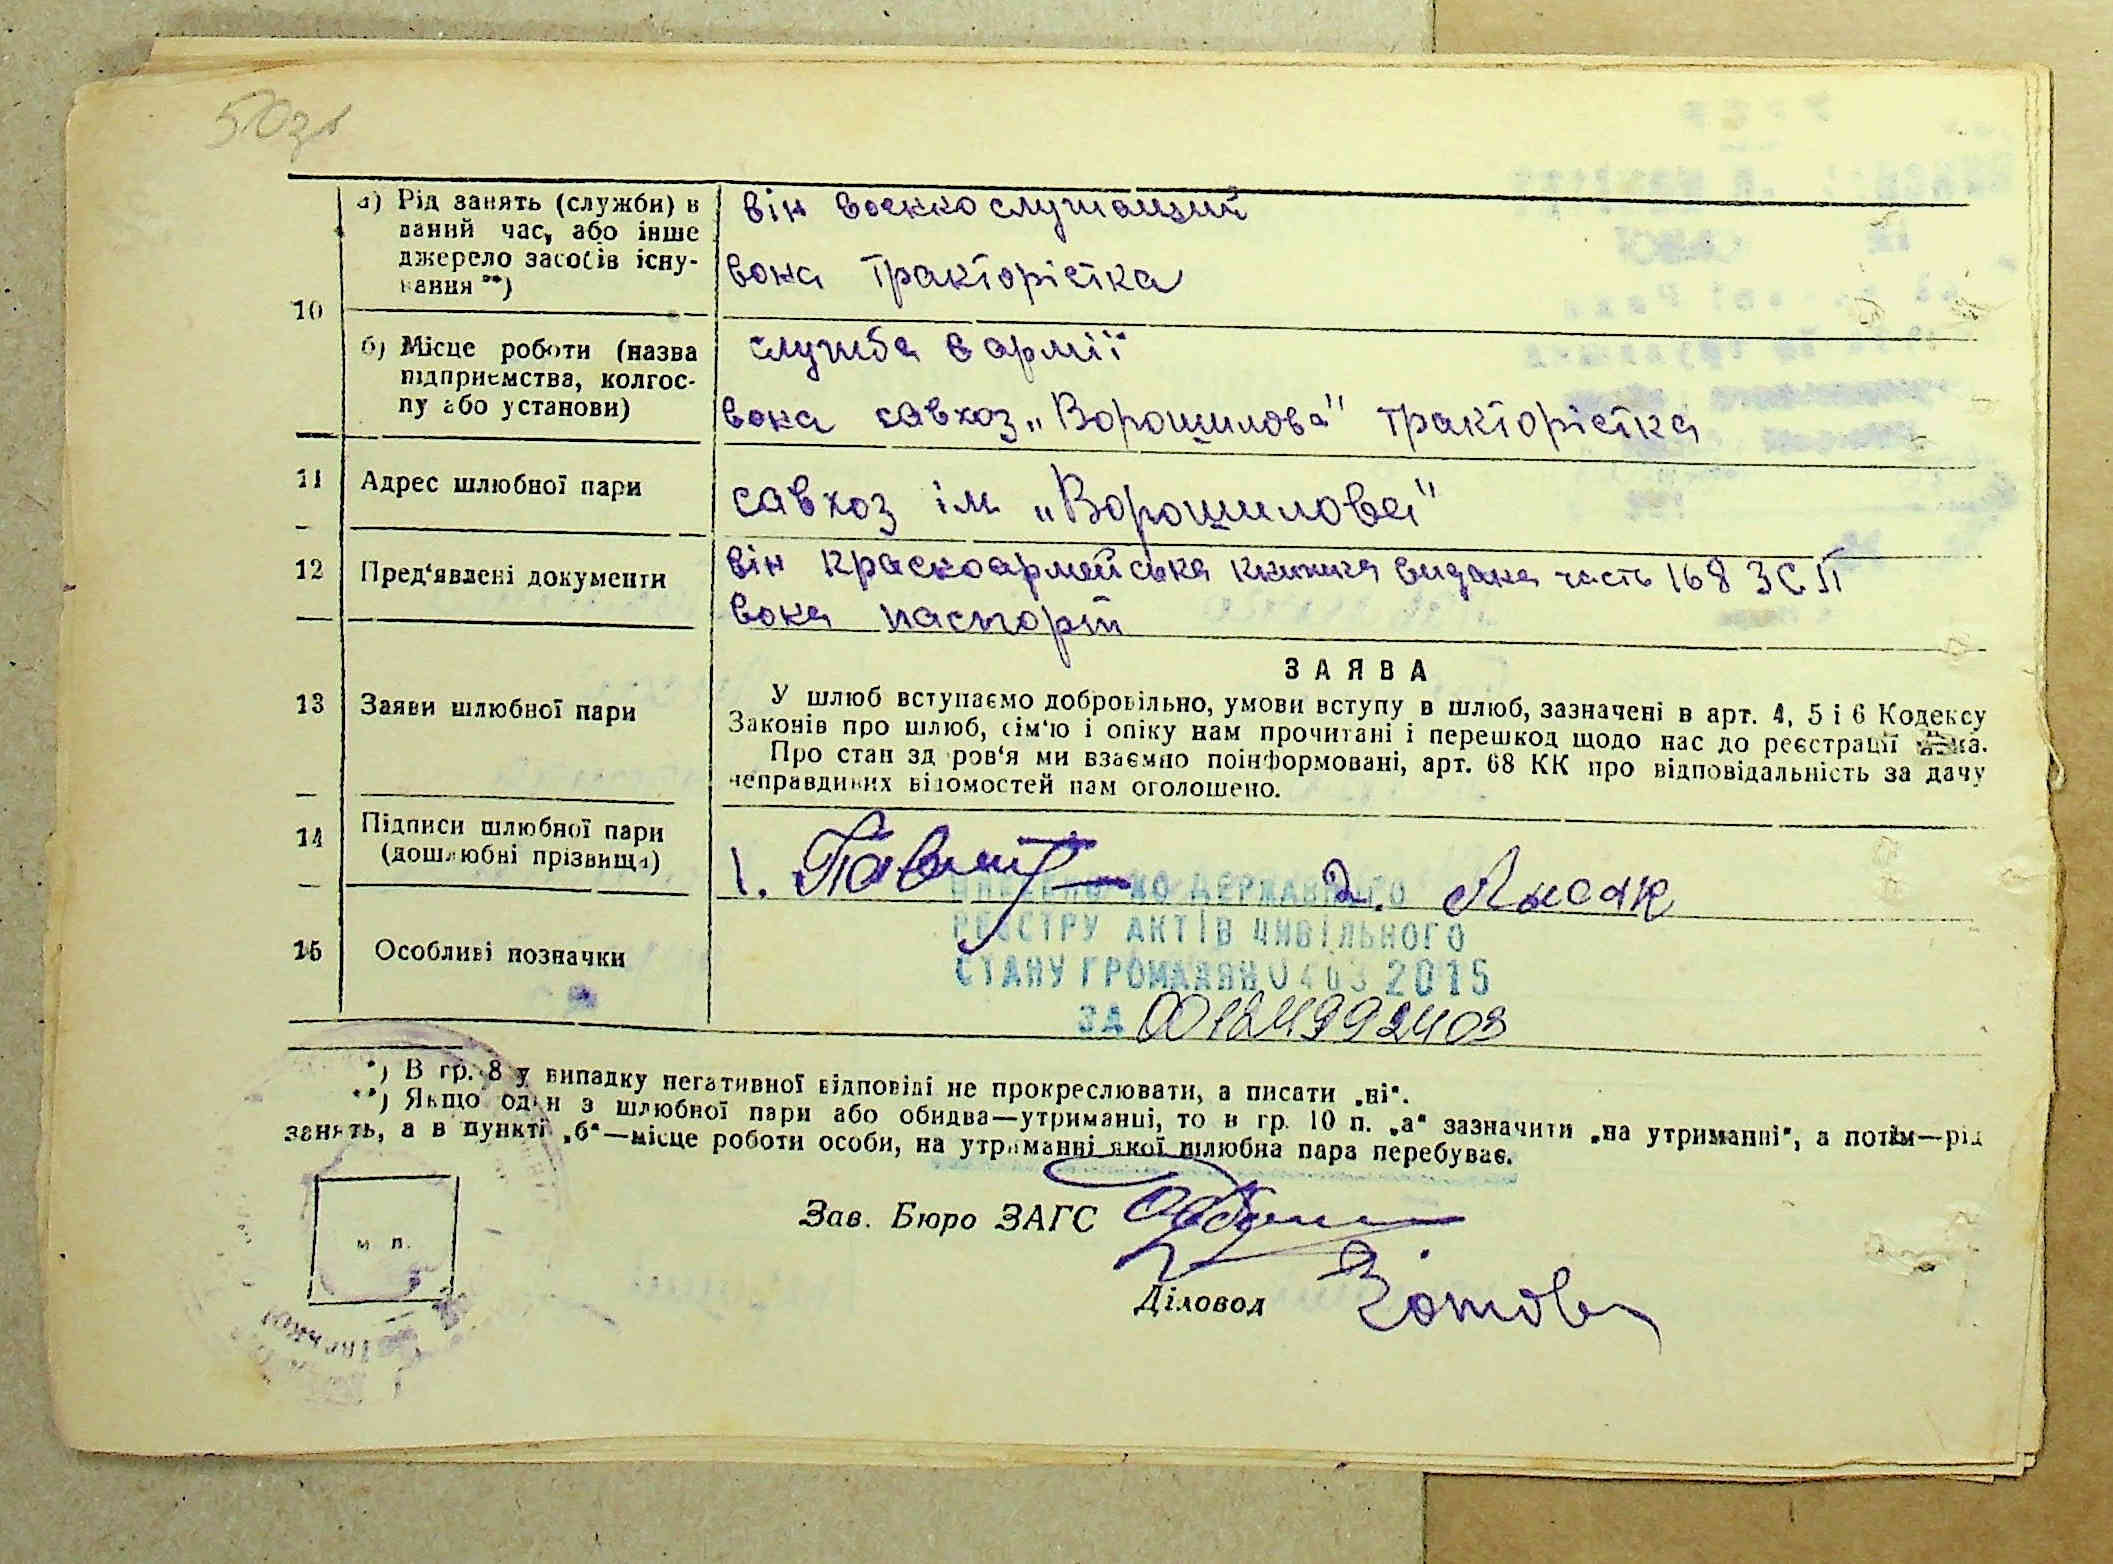 50зв
10
а) Рід занять (служби) в
даний час, або інше
джерело засобів існу-
вання **)
він военнослужащий
вона трактористка
б) Місце роботи (назва
підприємства, колгос-
пу або установи)
служба в армії
вона савхоз „Ворошилова" трактористка
11 Адрес шлюбної пари
савхоз ім „Ворошилова"
12 Пред'явлені документи
він красноармейська книжка видана часть 168 ЗСП
вона паспорт
13 Заяви шлюбної пари
ЗАЯВА
У шлюб вступаємо добровільно, умови вступу в шлюб, зазначені в арт. 4, 5 і 6 Кодексу
Законів про шлюб, сім'ю і опіку нам прочитані і перешкод щодо нас до реєстрації
Про стан здоров'я ми взаємно поінформовані, арт. 68 КК про відповідальність за дачу
неправдивих відомостей нам оголошено.
14 Підписи шлюбної пари
(дошлюбні прізвища)
1. 2. Лысак
15 Особливі позначки
ВНЕСЕНО ДО ДЕРЖАВНОГО
РЕЄСТРУ АКТІВ ЦИВІЛЬНОГО
СТАНУ ГРОМАДЯН 04 03 2015
ЗА 00124992403
*) В гр. 8 у випадку негативної відповіді не прокреслювати, а писати „ні".
**) Якщо один з шлюбної пари або обидва—утриманці, то в гр. 10 п. „а" зазначити „на утриманні", а потім—рід
занять, а в пункті „б"—місце роботи особи, на утриманні якої шлюбна пара перебуває.
Зав. Бюро ЗАГС
м п.
Діловод Зотова